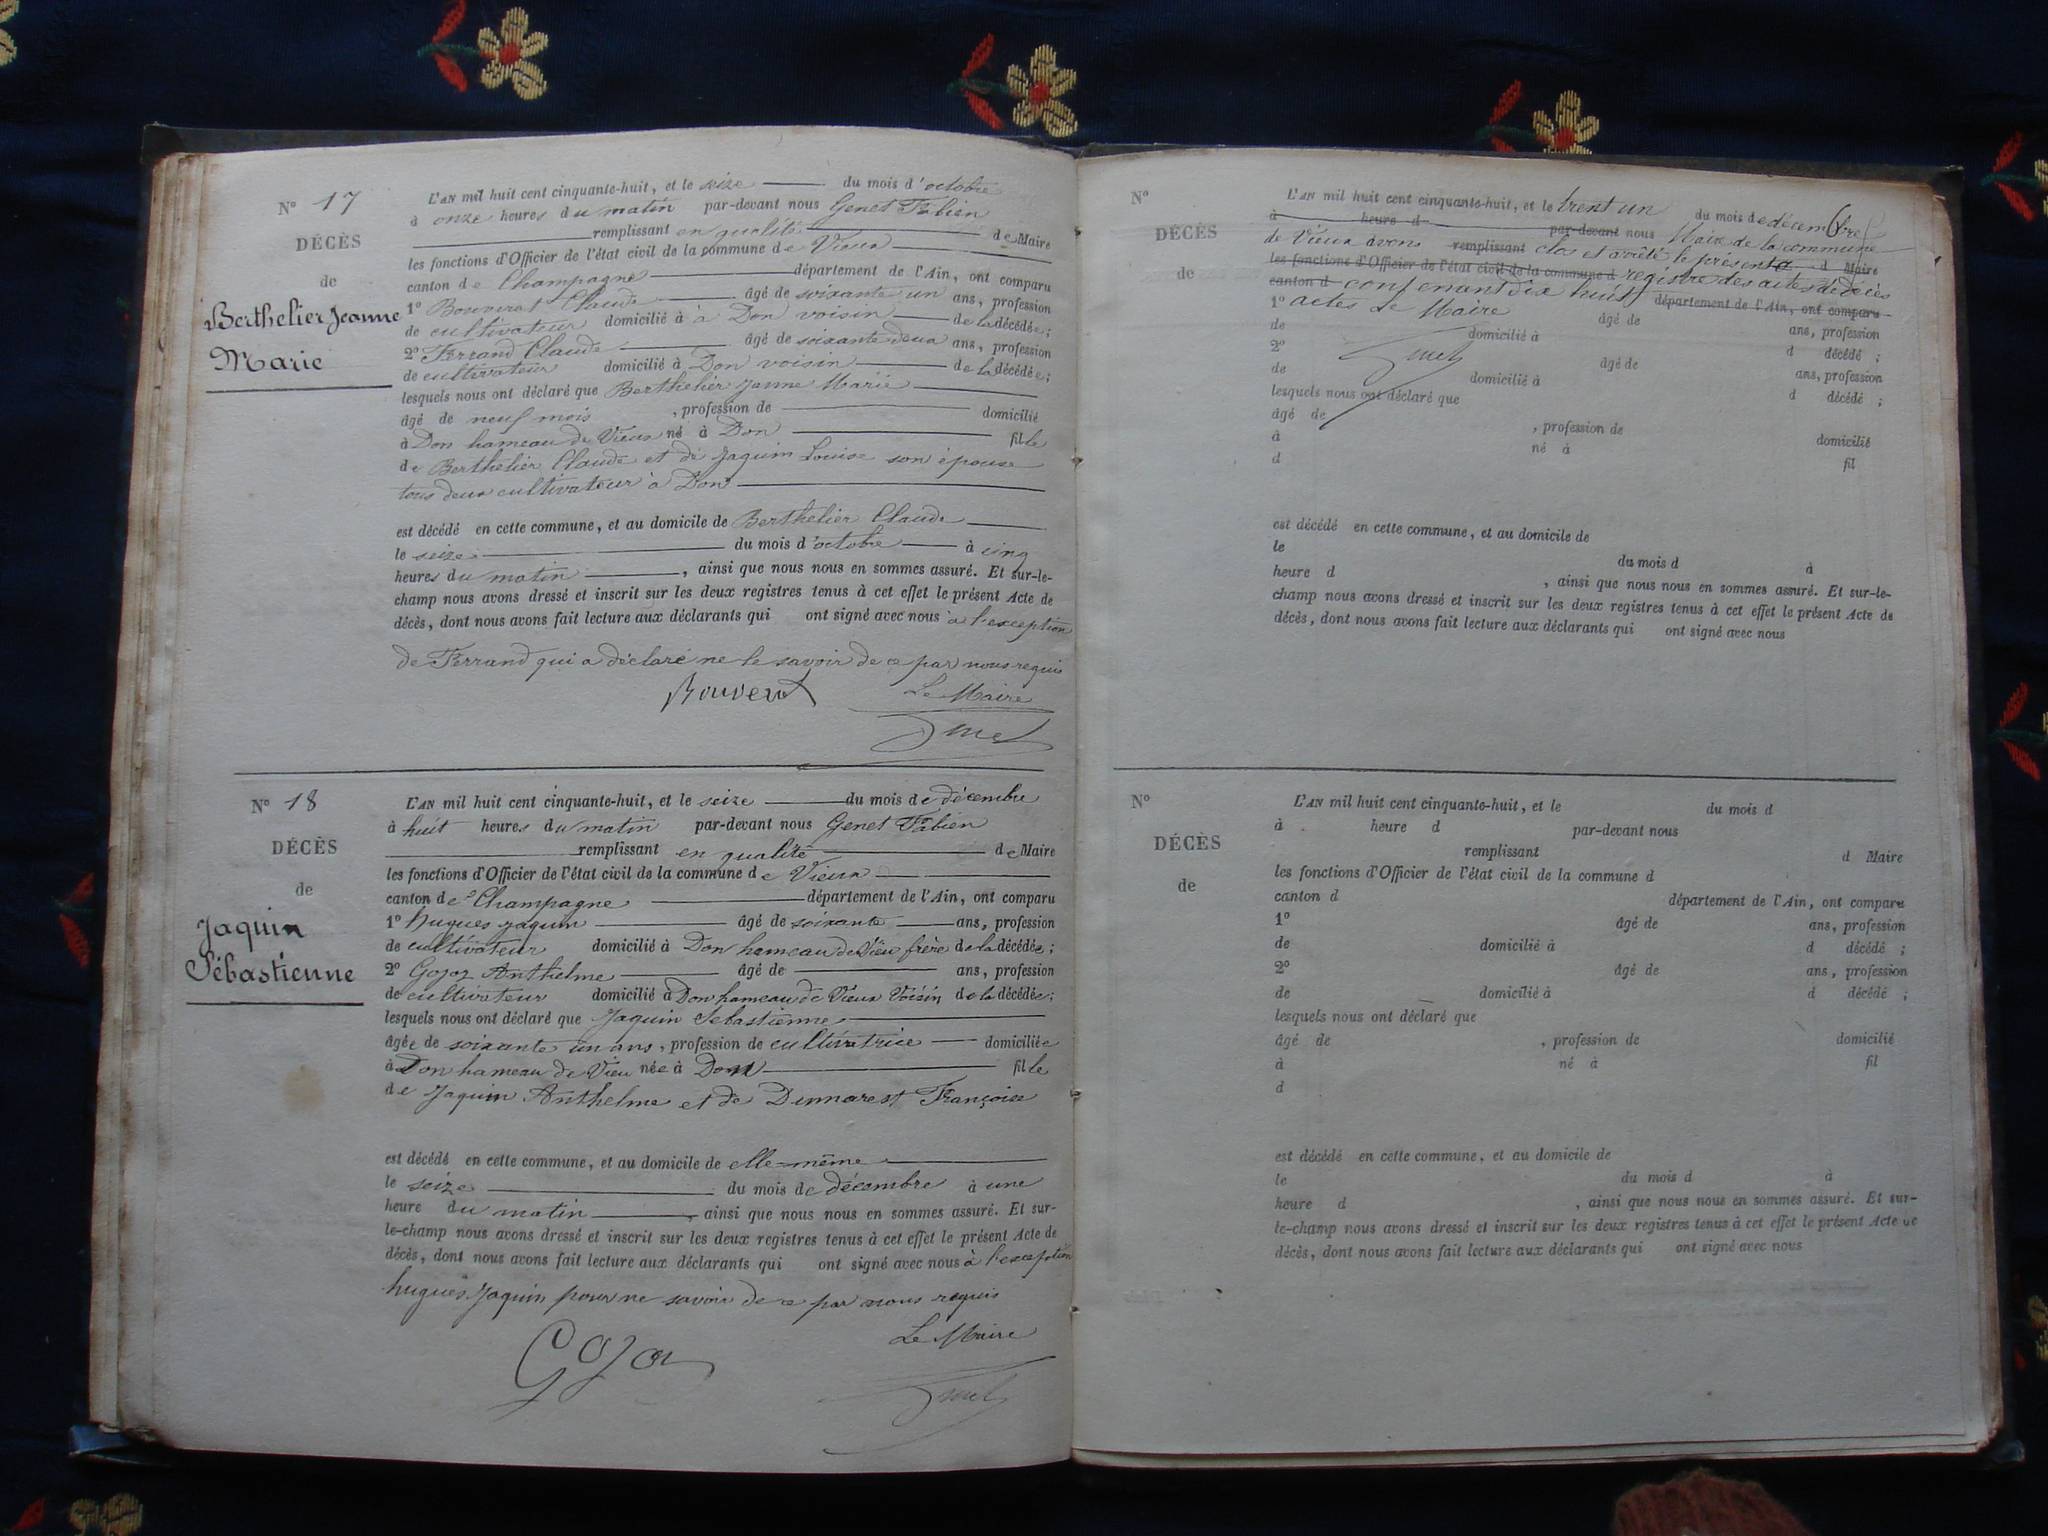 N° 17
DÉCÈS
de
Berthelier Jeanne
Marie
L'AN mil huit cent cinquante-huit, et le seize du mois d'octobre
à onze heures du matin par-devant nous Genet Fabien
remplissant en qualité de Maire
les fonctions d'Officier de l'état civil de la commune de Vieux
canton de Champagne département de l'Ain, ont comparu
1° Bouverat Claude âgé de soixante un ans, profession
de cultivateur domicilié à à Don voisin de la décédée;
2° Ferrand Claude âgé de soixante deux ans, profession
de cultivateur domicilié à Don voisin de la décédée;
lesquels nous ont déclaré que Berthelier Jeanne Marie
âgé de neuf mois, profession de domicilié
à Don hameau de Vieux né à Don fille
de Berthelier Claude et de Jaquin Louise son épouse
tous deux cultivateur à Don
est décédé en cette commune, et au domicile de Berthelier Claude
le seize du mois d'octobre à cinq
heures du matin, ainsi que nous nous en sommes assuré. Et sur-le-
champ nous avons dressé et inscrit sur les deux registres tenus à cet effet le présent Acte de
décès, dont nous avons fait lecture aux déclarants qui ont signé avec nous à l'exception
de Ferrand qui a déclaré ne le savoir de ce par nous requis
Le Maire
N° 18
DÉCÈS
de
Jaquin
Sébastienne
L'AN mil huit cent cinquante-huit, et le seize du mois de décembre
à huit heures du matin par-devant nous Genet Fabien
remplissant en qualité de Maire
les fonctions d'Officier de l'état civil de la commune de Vieux
canton de Champagne département de l'Ain, ont comparu
1° Hugues Jaquin âgé de soixante ans, profession
de cultivateur domicilié à Don hameau de Vieu frère de la décédée;
2° Gojoz Anthelme âgé de ans, profession
de cultivateur domicilié à Don hameau de Vieux Voisin de la décédée;
lesquels nous ont déclaré que Jaquin Sebastienne
âgée de soixante un ans, profession de cultivatrice domiciliée
à Don hameau de Vieu née à Don fille
de Jaquin Anthelme et de Dumarest Françoise
est décédé en cette commune, et au domicile de elle-même
le seize du mois de décembre à une
heure du matin, ainsi que nous nous en sommes assuré. Et sur-
le-champ nous avons dressé et inscrit sur les deux registres tenus à cet effet le présent Acte de
décès, dont nous avons fait lecture aux déclarants qui ont signé avec nous à l'exception
hugues Jaquin pour ne savoir de ce par nous requis
Le Maire
N°
DÉCÈS
de
L'AN mil huit cent cinquante-huit, et le trent un du mois de décembre
à heure d par-devant nous Maire de la commune
de Vieux avons remplissant clos et arrêté le présent d Maire
les fonctions d'Officier de l'état civil de la commune d registre des actes de décès
canton d contenant dix huit département de l'Ain, ont comparu
1° actes Le Maire âgé de ans, profession
de domicilié à d décédé ;
2° âgé de ans, profession
de domicilié à d décédé ;
lesquels nous ont déclaré que
âgé de , profession de domicilié
à né à fil
d
est décédé en cette commune, et au domicile de
le du mois d à
heure d , ainsi que nous nous en sommes assuré. Et sur-le-
champ nous avons dressé et inscrit sur les deux registres tenus à cet effet le présent Acte de
décès, dont nous avons fait lecture aux déclarants qui ont signé avec nous
N°
DÉCÈS
de
L'AN mil huit cent cinquante-huit, et le du mois d
à heure d par-devant nous
remplissant d Maire
les fonctions d'Officier de l'état civil de la commune d
canton d département de l'Ain, ont comparu
1° âgé de ans, profession
de domicilié à d décédé ;
2° âgé de ans, profession
de domicilié à d décédé ;
lesquels nous ont déclaré que
âgé de , profession de domicilié
à né à fil
d
est décédé en cette commune, et au domicile de
le du mois d à
heure d , ainsi que nous nous en sommes assuré. Et sur-
le-champ nous avons dressé et inscrit sur les deux registres tenus à cet effet le présent Acte de
décès, dont nous avons fait lecture aux déclarants qui ont signé avec nous